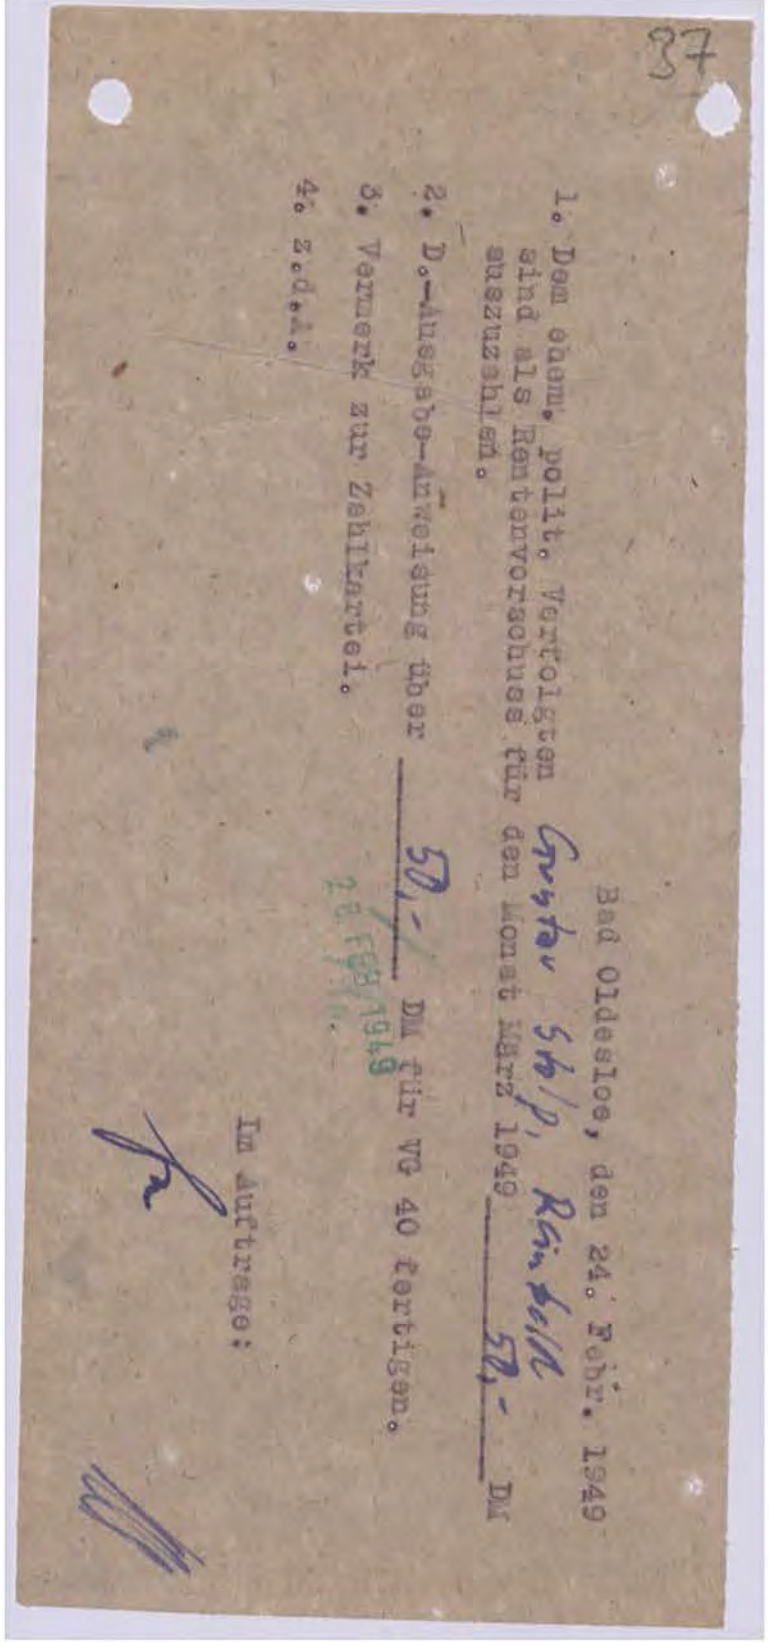 37
Bad Oldesloe, den 24. Febr. 1949
1. Dem ehem. polit. Verfolgten Gustav Stolp, Reinbek
sind als Rentenvorschuss für den Monat März 1949 50,- DM
auszuzahlen.
2. D.-Ausgabe-Anweisung über 50,- DM für VG 40 fertigen.
3. Vermerk zur Zahlkartei.
28. FEB. 1949
4. z.d.A.
Im Auftrage: